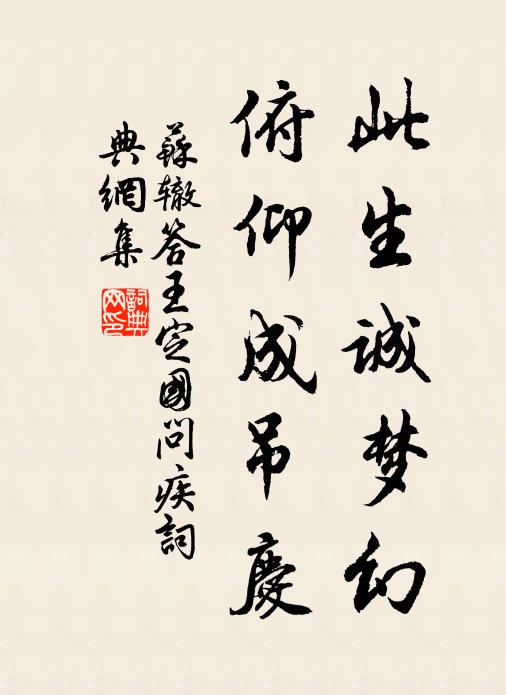 此生诚梦幻
俯仰成吊慶
蘇辙答王定國問疾詞
典網集
詞典网印